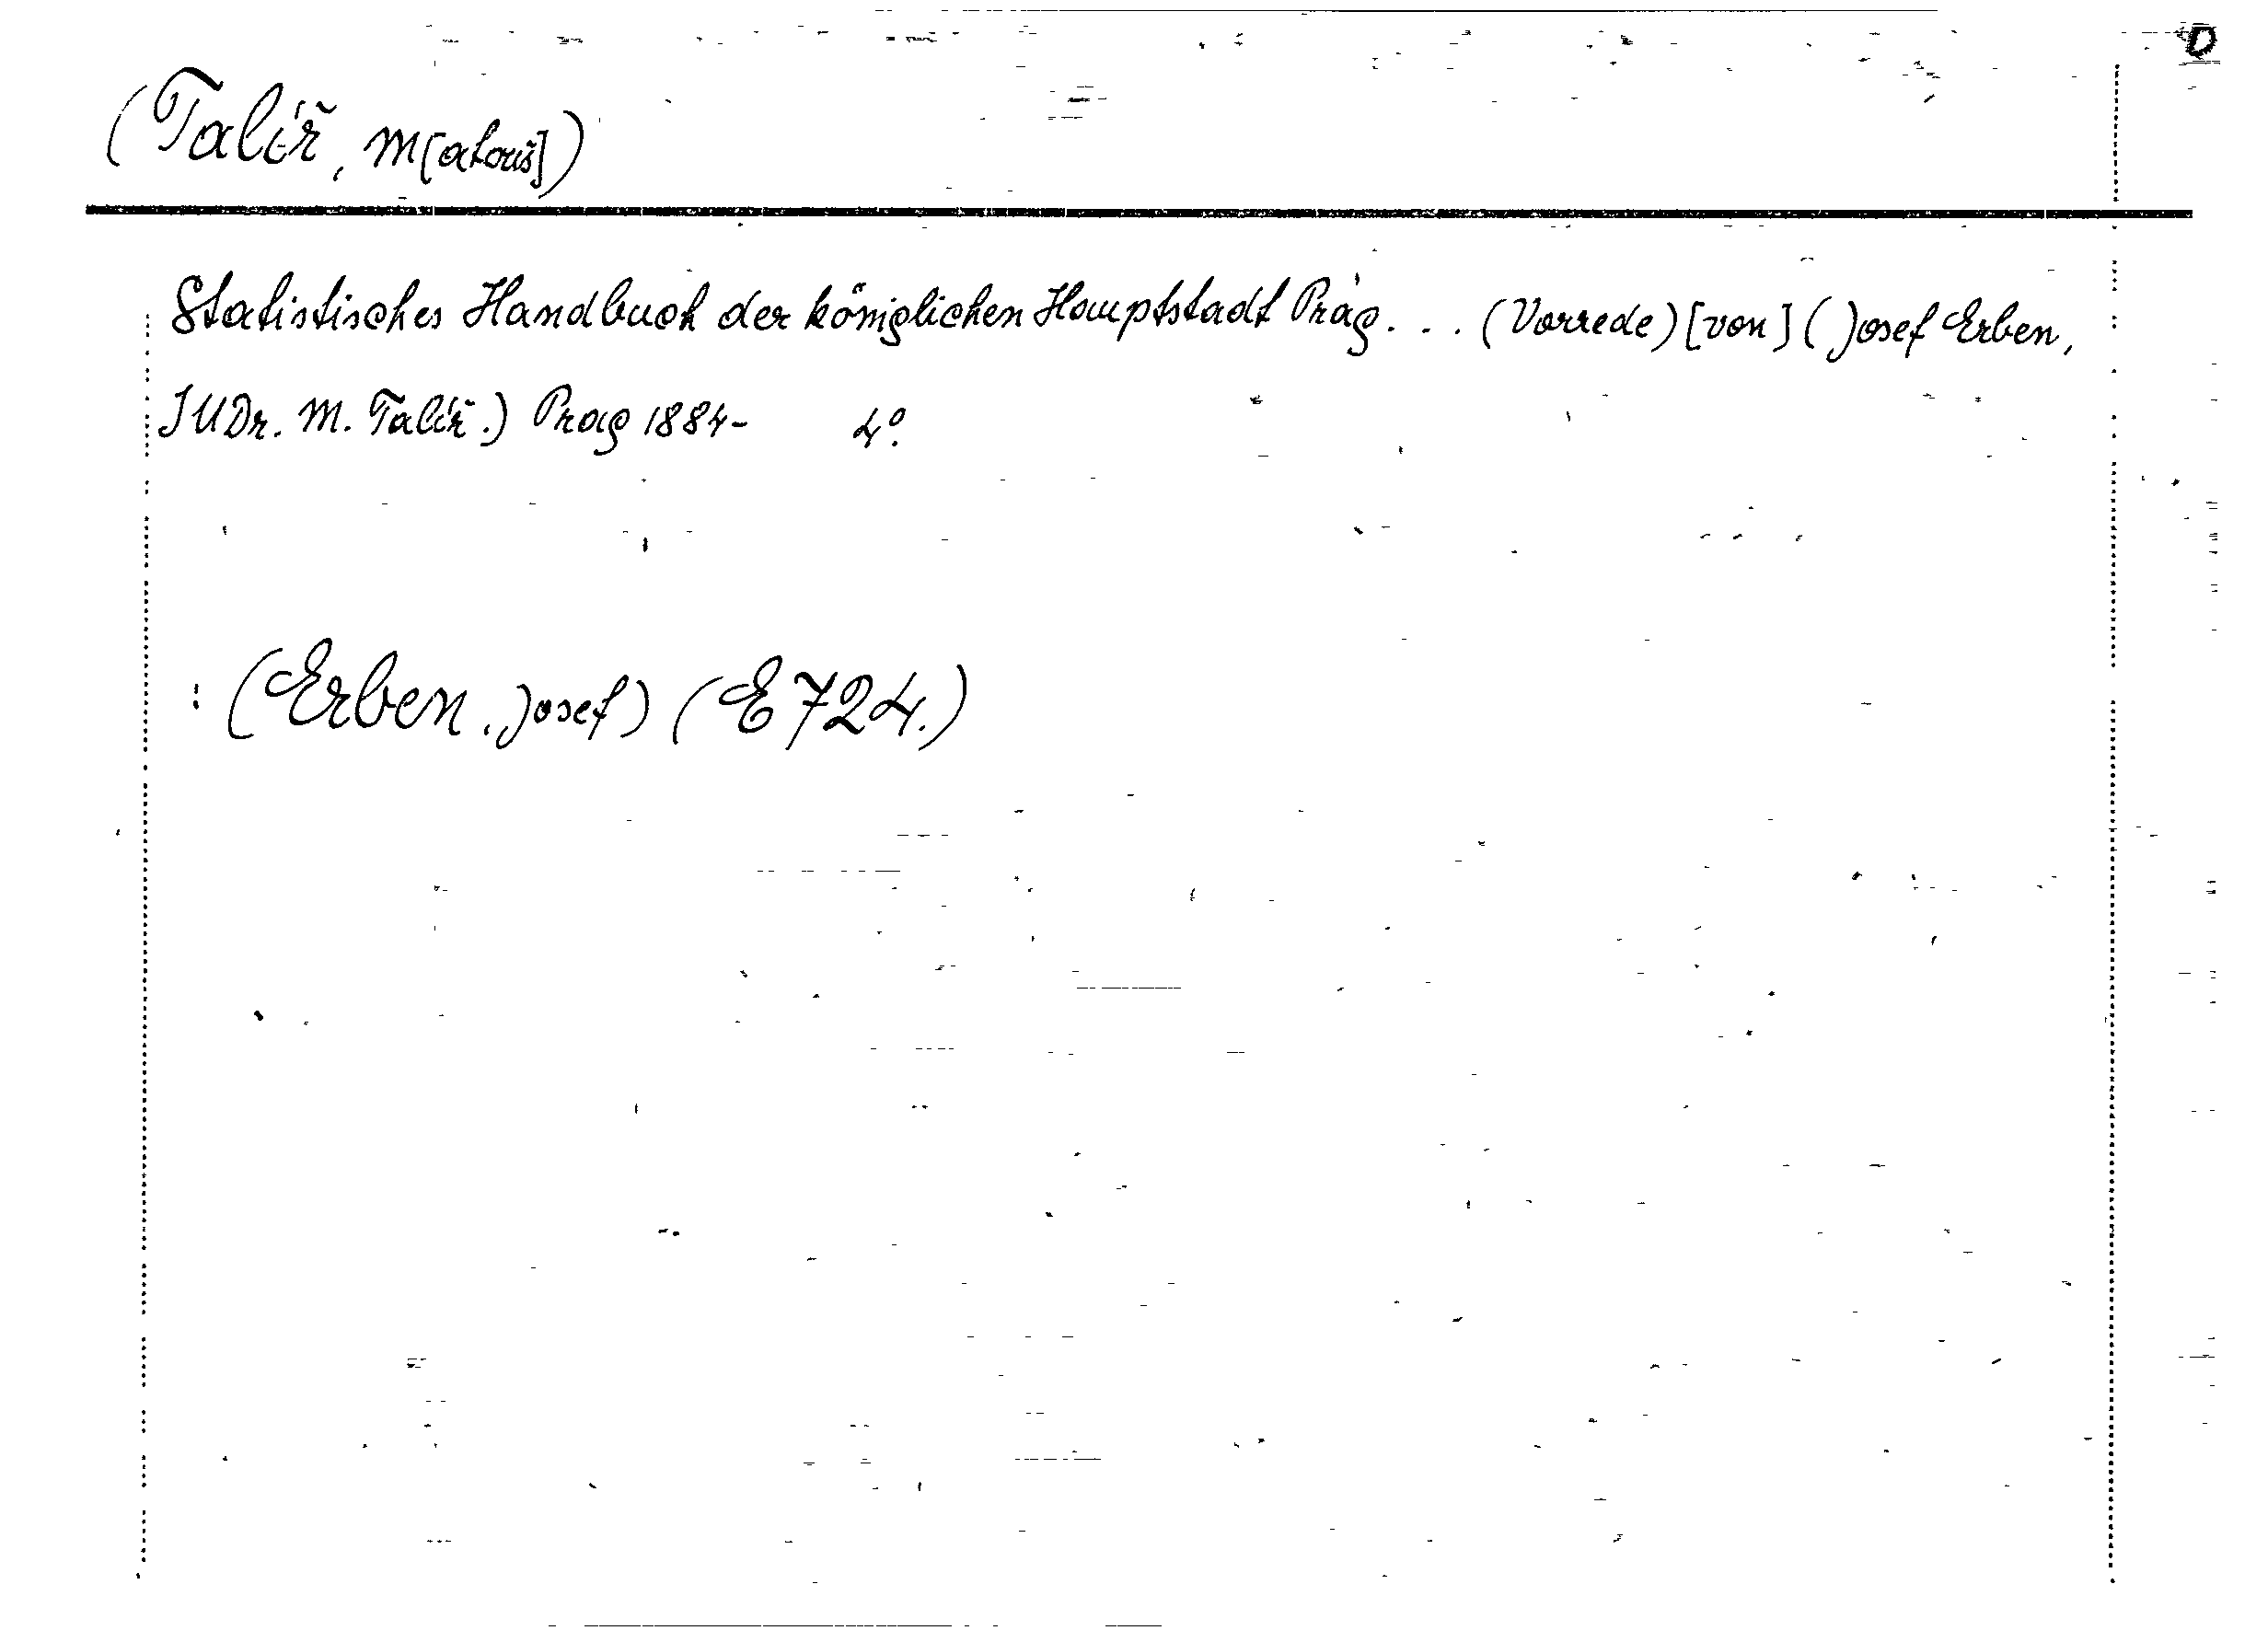 D
(Talíř, M[atouš])
Statistisches Handbuch der königlichen Hauptstadt Prag... (Vorrede) [von] (Josef Erben,
JUDr. M. Talíř.) Prag 1884- 4°.
: (Erben, Josef) (E 724.)